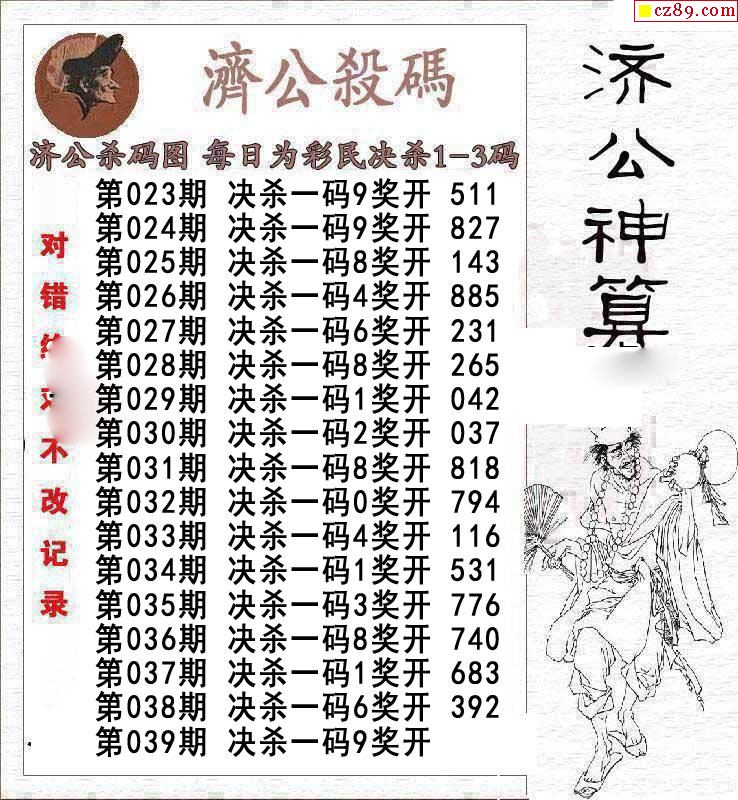 cz89.com
濟公殺碼
济公杀码图 每日为彩民决杀1-3码
第023期 决杀一码9奖开 511
第024期 决杀一码9奖开 827
第025期 决杀一码8奖开 143
第026期 决杀一码4奖开 885
第027期 决杀一码6奖开 231
第028期 决杀一码8奖开 265
第029期 决杀一码1奖开 042
第030期 决杀一码2奖开 037
第031期 决杀一码8奖开 818
第032期 决杀一码0奖开 794
第033期 决杀一码4奖开 116
第034期 决杀一码1奖开 531
第035期 决杀一码3奖开 776
第036期 决杀一码8奖开 740
第037期 决杀一码1奖开 683
第038期 决杀一码6奖开 392
第039期 决杀一码9奖开
对错
不改记录
济公神算